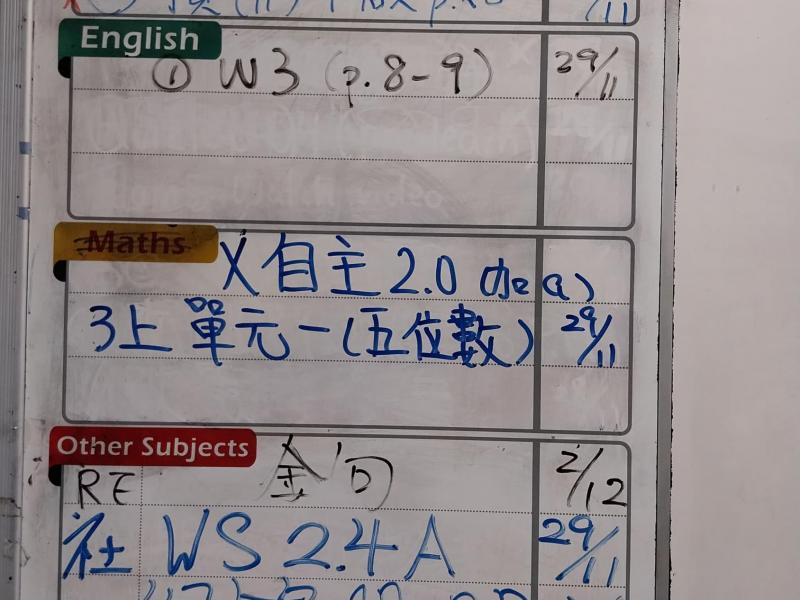 /11
English
① W3 (p.8-9) 29/11
Maths
X 自主2.0
3上 單元一(五位數) 29/11
Other Subjects
RE 2/12
社 WS 2.4A 29/11